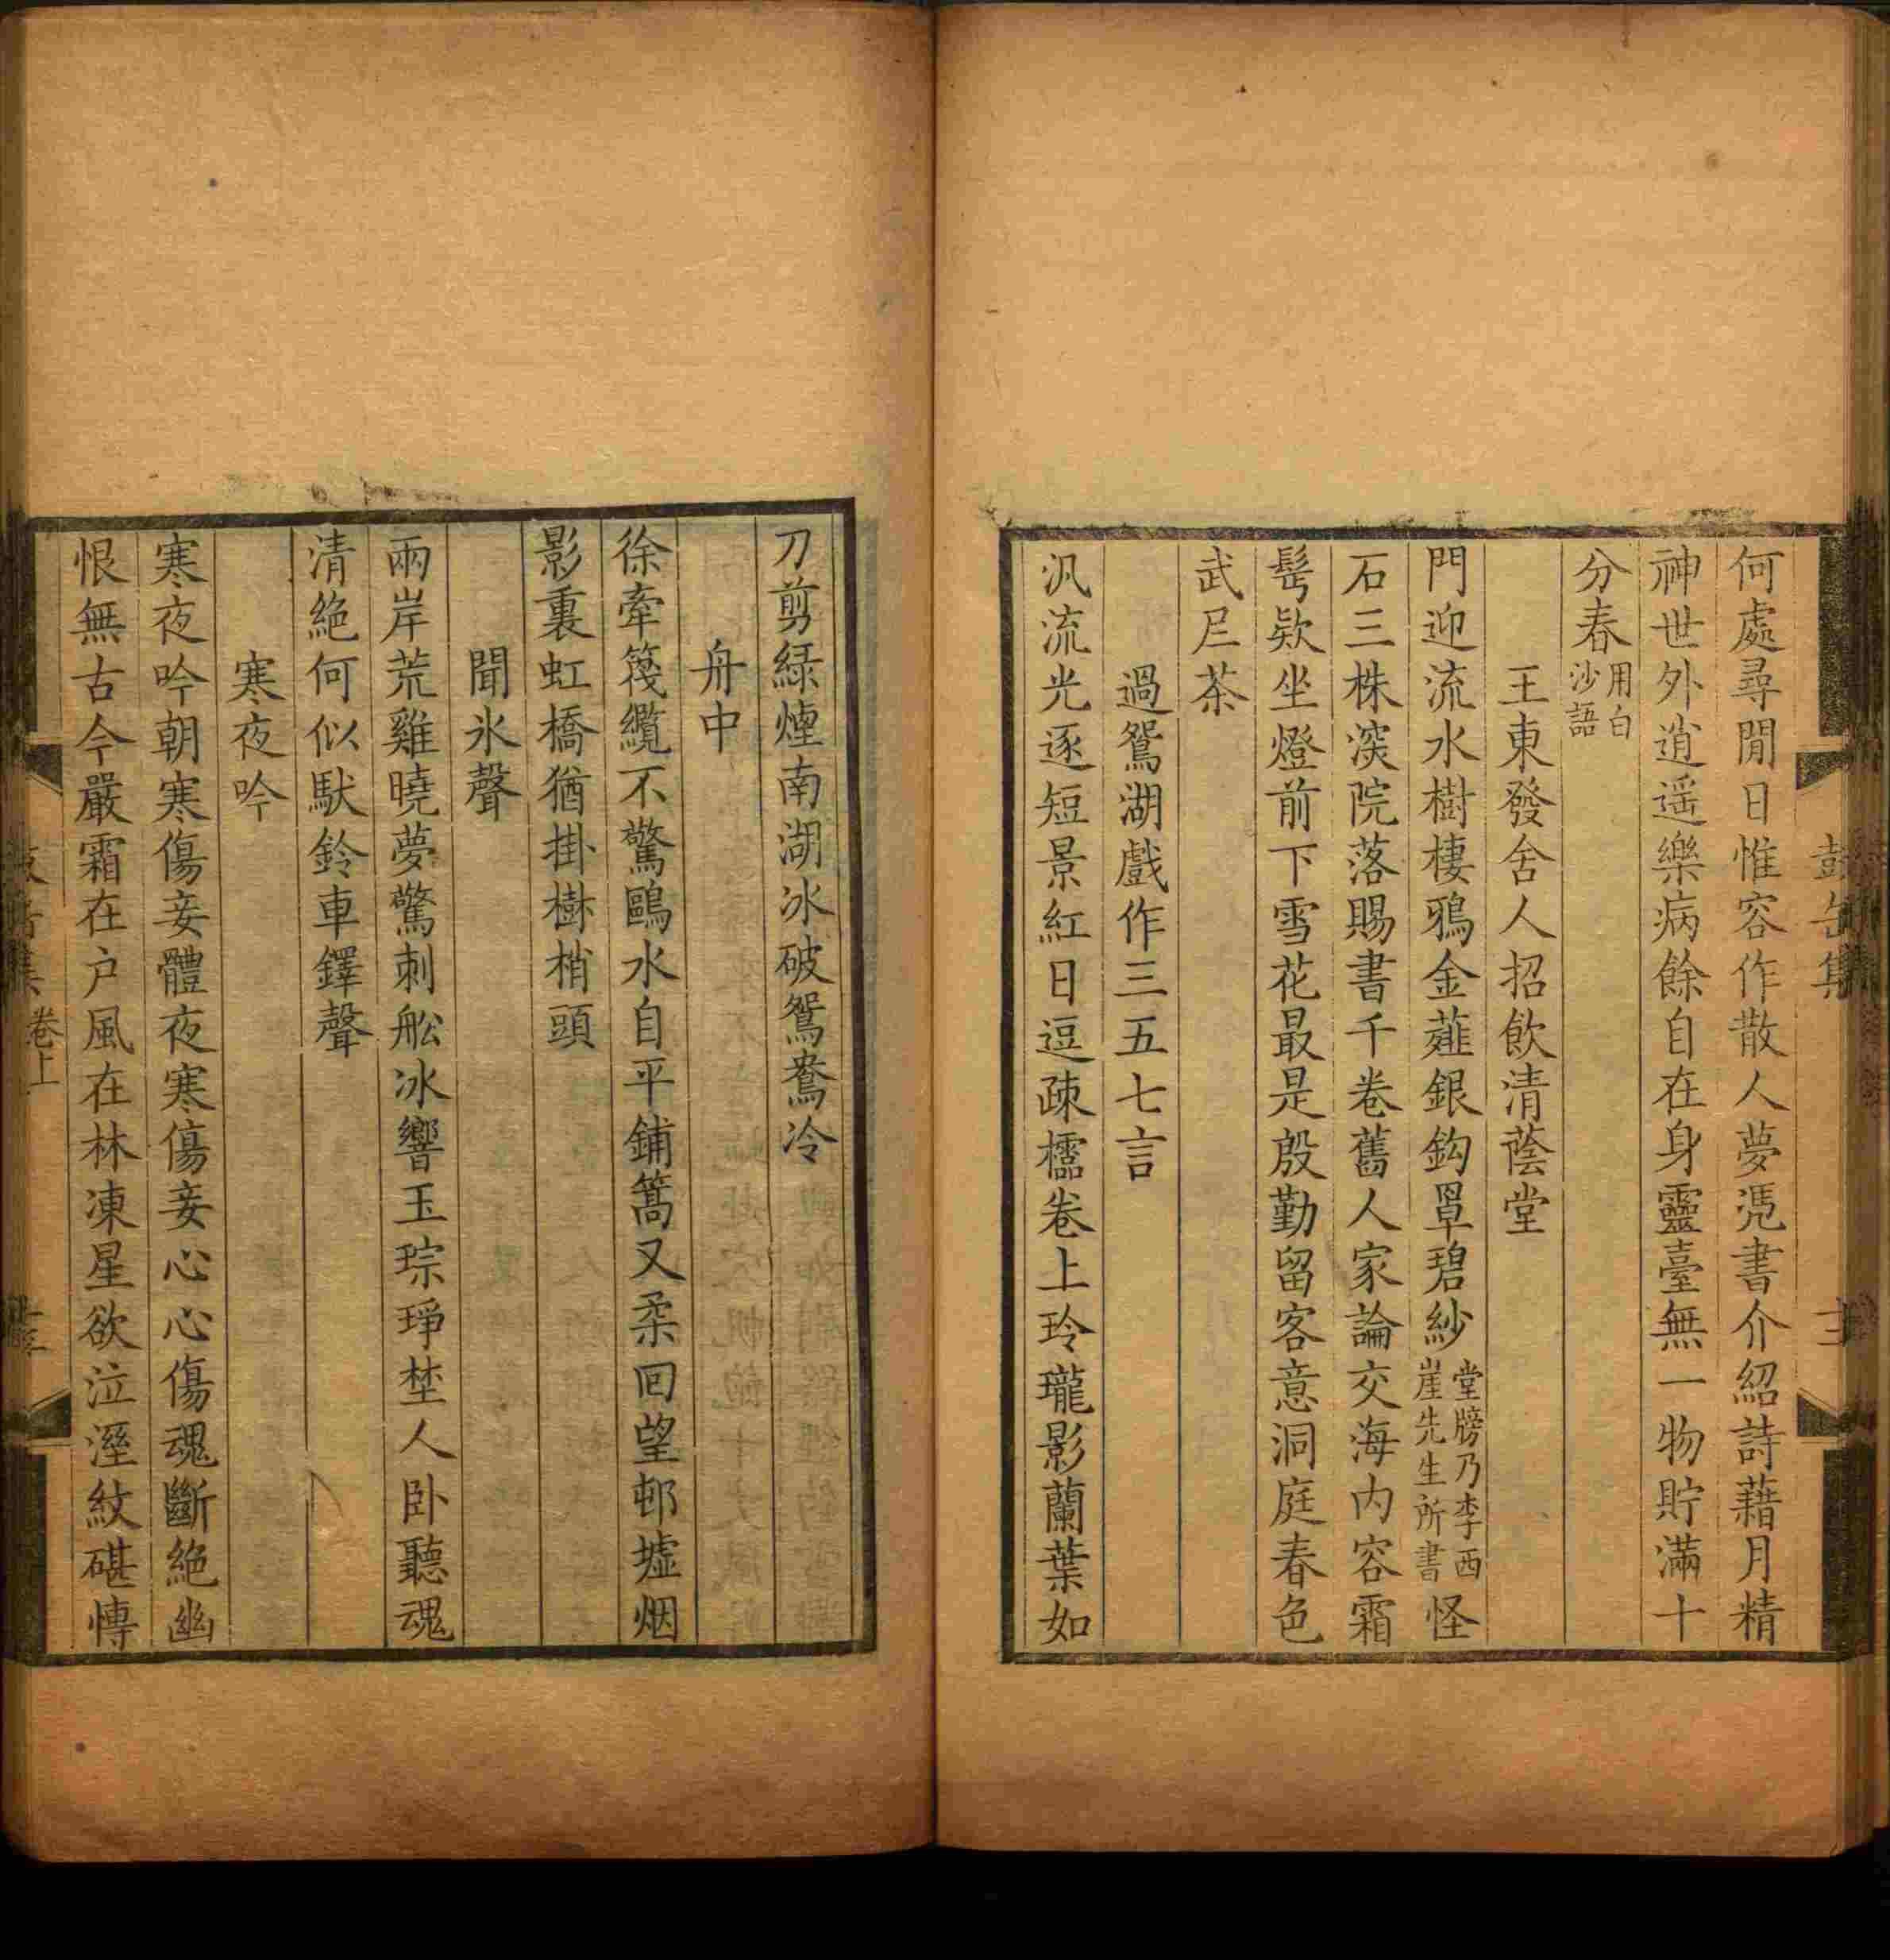 何處尋閒日惟容作散人夢馮書介紹詩藉月精
神世外逍遥樂病餘自在身靈臺無一物貯滿十
分春用白沙語
王東發舍人招飲清蔭堂
門迎流水樹棲鴉金薤銀鈎罩碧紗堂牓乃李西崖先生所書怪
石三株深院落賜書千卷舊人家論交海内容霜
髩欵坐燈前下雪花最是殷勤留客意洞庭春色
武𡰥茶
過鴛湖戲作三五七言
汎流光逐短景紅日逗疎櫺卷上玲瓏影蘭葉如
刀剪緑煙南湖冰破鴛鴦冷
舟中
徐牽筏纜不驚鷗水自平鋪篙又柔回望邨墟烟
影裏虹橋猶掛樹梢頭
聞氷聲
兩岸荒雞曉夢驚刺舩冰響玉琮琤埜人卧聽魂
清絶何似馱鈴車鐸聲
寒夜吟
寒夜吟朝寒傷妾體夜寒傷妾心心傷魂斷絶幽
恨無古今嚴霜在户風在林凍星欲泣溼紋碪慱
卷上